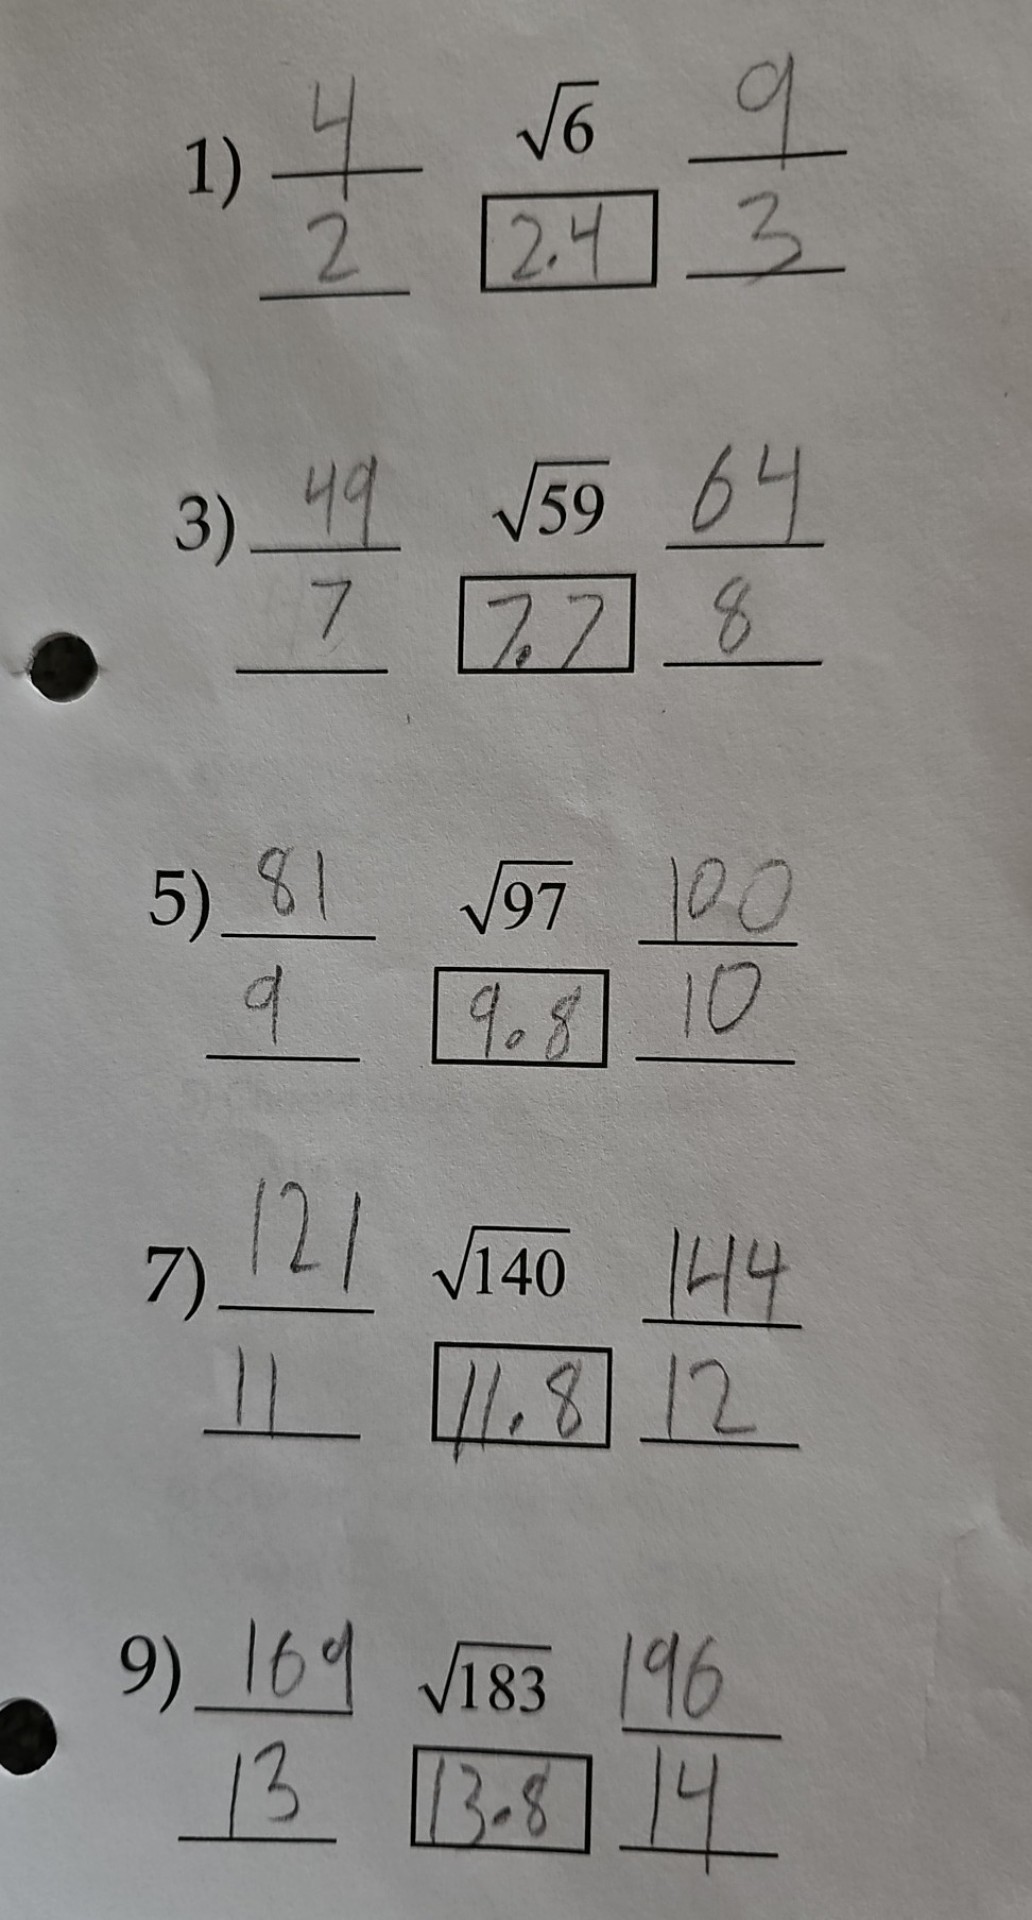 1) 4 √6 9
2 2.4 3
3) 49 √59 64
7 7.7 8
5) 81 √97 100
9 9.8 10
7) 121 √140 144
11 11.8 12
9) 169 √183 196
13 13.8 14